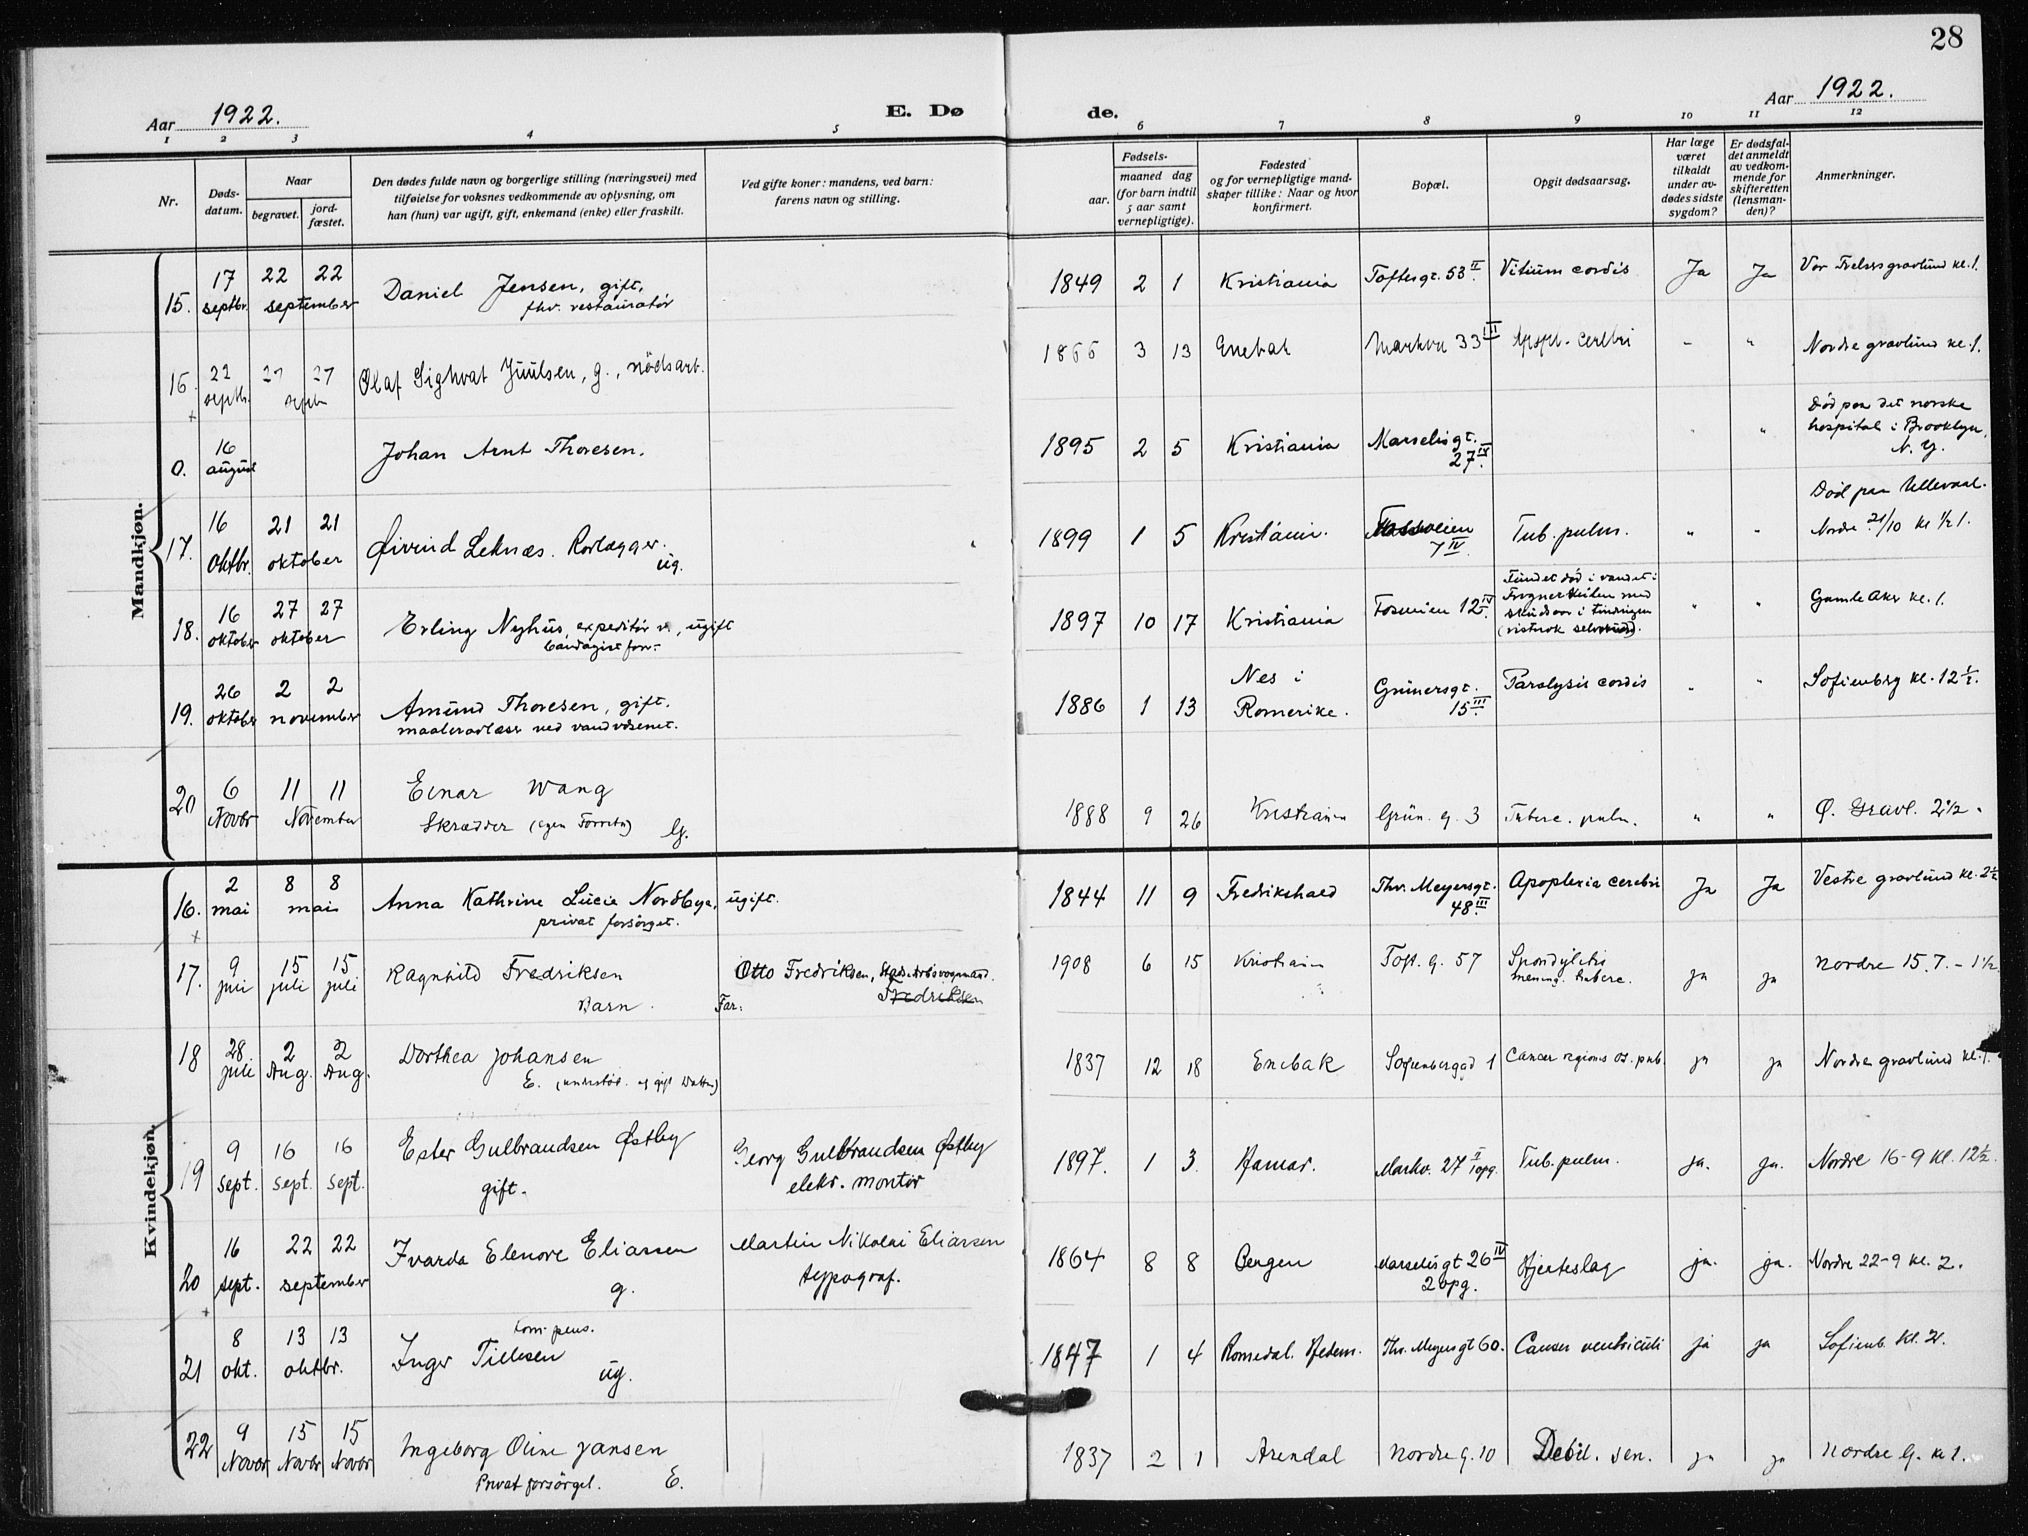 28
Aar 1922. E. Dø de. Aar 1922.
1 2 3 4 5 6 7 8 9 10 11 12
Nr.
Døds-
datum.
Naar
begravet.
jord-
fæstet.
Den dødes fulde navn og borgerlige stilling (næringsvei) med
tilføielse for voksnes vedkommende av oplysning, om
han (hun) var ugift, gift, enkemand (enke) eller fraskilt.
Ved gifte koner: mandens, ved barn:
farens navn og stilling.
Fødsels-
aar.
maaned dag
(for barn indtil
5 aar samt
vernepligtige).
Fødested
og for vernepligtige mand-
skaper tillike: Naar og hvor
konfirmert.
Bopæl.
Opgit dødsaarsag.
Har læge
været
tilkaldt
under av-
dødes sidste
sygdom?
Er dødsfal-
det anmeldt
av vedkom-
mende for
skifteretten
(lensman-
den)?
Anmerkninger.
Mandkjøn.
15. 17 septbr. 22 22 september Daniel Jensen, gift,
fhv. restauratør
1849 2 1 Kristiania Toftesgt. 53 II Vitium cordis Ja Ja Vor Frelsers gravlund kl. 1.
16. 22 septbr. 27 27 septbr Olaf Sighvat Juulsen, g., nödsarb.
1866 3 13 Enebak Markvn 33 III Apopl. cerebri - " Nordre gravlund kl. 1.
0. 16 august Johan Arnt Thoresen.
1895 2 5 Kristiania Marselisgt.
27 IV. " Död paa det norske
hospital i Brooklyn,
N. Y.
17. 16 oktbr. 21 21 oktober Øivind Leknæs. Rörlægger.
ug.
1899 1 5 Kristiania.
7 IV. Tub. pulm. " " Död paa Ullevaal.
Nordre 21/10 kl ½ 1.
18. 16 oktober 27 27 oktober Erling Nyhus, expeditör v., ugift
bandagist forr.
1897 10 17 Kristiania Fosveien 12 IV. Fundet död i vandet i
Frognerkilen med
skudsaar i tindingen
(vistnok selvmord). " " Gamle Aker kl. 1.
19. 26 oktober 2 2 november Amund Thoresen, gift.
maaleravlæser ved vandvæsenet.
1886 1 13 Nes i
Romerike. Grünersgt.
15 III. Paralysis cordis " " Sofienberg kl. 12 ½.
20 6 Novbr 11 11 November Einar Wang
Skrædder (egen Forretn) G.
1888 9 26 Kristiania Grün. g. 3 Tuberc. pulm. " " Ø. Gravl. 2½.
Kvindekjøn.
16. 2 mai 8 8 mai Anna Kathrine Lucie Nordbye, ugift.
privat forsørget.
1844 11 9 Fredrikshald Thv. Meyersgt.
48 III. Apoplexia cerebri Ja Ja Vestre gravlund kl. 2½
17. 9 juli 15 juli 15 juli Ragnhild Fredriksen
Barn.
Far: Otto Fredriksen,
Fredriksen
1908 6 15 Kristiania Toft. g. 57 Spondylitis
mening. tuberc. ja ja Nordre 15.7. - 1½
18 28 juli 2 Aug. 2 Aug. Dorthea Johansen
E.
1837 12 18 Enebak Sofienberggd 1 Cancer regionis os. pub. ja ja Nordre gravlund kl. 1.
19 9 sept. 16 sept. 16 sept. Ester Gulbrandsen Østby
gift.
Georg Gulbrandsen Østby
elektr. montör
1897. 1 3. Hamar. Markv. 27 II opg. Tub. pulm. ja. ja. Nordre 16-9 kl. 12½.
20 16 sept. 22 22 september Ivarda Elenore Eliassen
g.
Martin Nikolai Eliassen
typograf.
1864 8 8 Bergen Marselisgt 26 IV
2 opg. Hjerteslag ja. ja. Nordre 22-9 kl. 2.
21 8 okt. 13 13 oktbr. Kom. pens.
Inger Tillesen
ug.
1847 1 4 Romedal. Hedem. Thv. Meyersgt 60. Cancer ventriculi ja ja Sofienb. kl. 2.
22 9 Novbr 15 Novbr 15 Novbr Ingeborg Oline Jansen
Privat forsørget. E.
1837 2 1 Arendal Nordre g. 10 Debil. sen. ja ja Nordre G. kl 1.